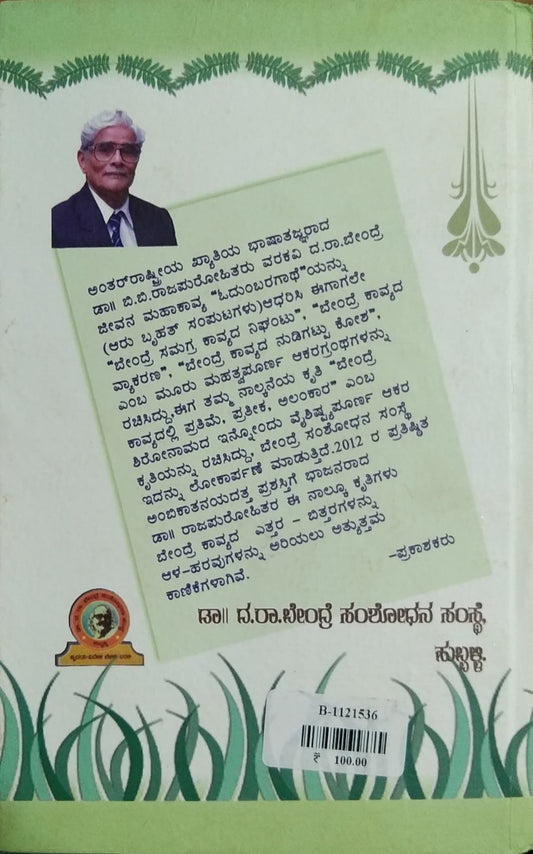 ಅಂತರ್‌ರಾಷ್ಟ್ರೀಯ ಖ್ಯಾತಿಯ ಭಾಷಾತಜ್ಞರಾದ
ಡಾ॥ ಬಿ.ಬಿ.ರಾಜಪುರೋಹಿತರು ವರಕವಿ ದ.ರಾ.ಬೇಂದ್ರೆ
ಜೀವನ ಮಹಾಕಾವ್ಯ "ಓದುಂಬರಗಾಥೆ"ಯನ್ನು
(ಆರು ಬೃಹತ್ ಸಂಪುಟಗಳು)ಆಧರಿಸಿ ಈಗಾಗಲೇ
"ಬೇಂದ್ರೆ ಸಮಗ್ರ ಕಾವ್ಯದ ನಿಘಂಟು", "ಬೇಂದ್ರೆ ಕಾವ್ಯದ
ವ್ಯಾಕರಣ", "ಬೇಂದ್ರೆ ಕಾವ್ಯದ ನುಡಿಗಟ್ಟು ಕೋಶ",
ಎಂಬ ಮೂರು ಮಹತ್ವಪೂರ್ಣ ಆಕರಗ್ರಂಥಗಳನ್ನು
ರಚಿಸಿದ್ದು,ಈಗ ತಮ್ಮ ನಾಲ್ಕನೆಯ ಕೃತಿ "ಬೇಂದ್ರೆ
ಕಾವ್ಯದಲ್ಲಿ ಪ್ರತಿಮೆ, ಪ್ರತೀಕ, ಅಲಂಕಾರ" ಎಂಬ
ಶಿರೋನಾಮದ ಇನ್ನೋಂದು ವೈಶಿಷ್ಟ್ಯಪೂರ್ಣ ಆಕರ
ಕೃತಿಯನ್ನು ರಚಿಸಿದ್ದು, ಬೇಂದ್ರೆ ಸಂಶೋಧನ ಸಂಸ್ಥೆ
ಇದನ್ನು ಲೋಕಾರ್ಪಣೆ ಮಾಡುತ್ತಿದೆ.2012 ರ ಪ್ರತಿಷ್ಠಿತ
ಅಂಬಿಕಾತನಯದತ್ತ ಪ್ರಶಸ್ತಿಗೆ ಭಾಜನರಾದ
ಡಾ॥ ರಾಜಪುರೋಹಿತರ ಈ ನಾಲ್ಕೂ ಕೃತಿಗಳು
ಬೇಂದ್ರೆ ಕಾವ್ಯದ ಎತ್ತರ - ಬಿತ್ತರಗಳನ್ನು
ಆಳ-ಹರವುಗಳನ್ನು ಅರಿಯಲು ಅತ್ಯುತ್ತಮ
ಕಾಣಿಕೆಗಳಾಗಿವೆ.
-ಪ್ರಕಾಶಕರು
ಡಾ॥ ದ.ರಾ.ಬೇಂದ್ರೆ ಸಂಶೋಧನ ಸಂಸ್ಥೆ,
ಹುಬ್ಬಳ್ಳಿ.
B-1121536
₹ 100.00